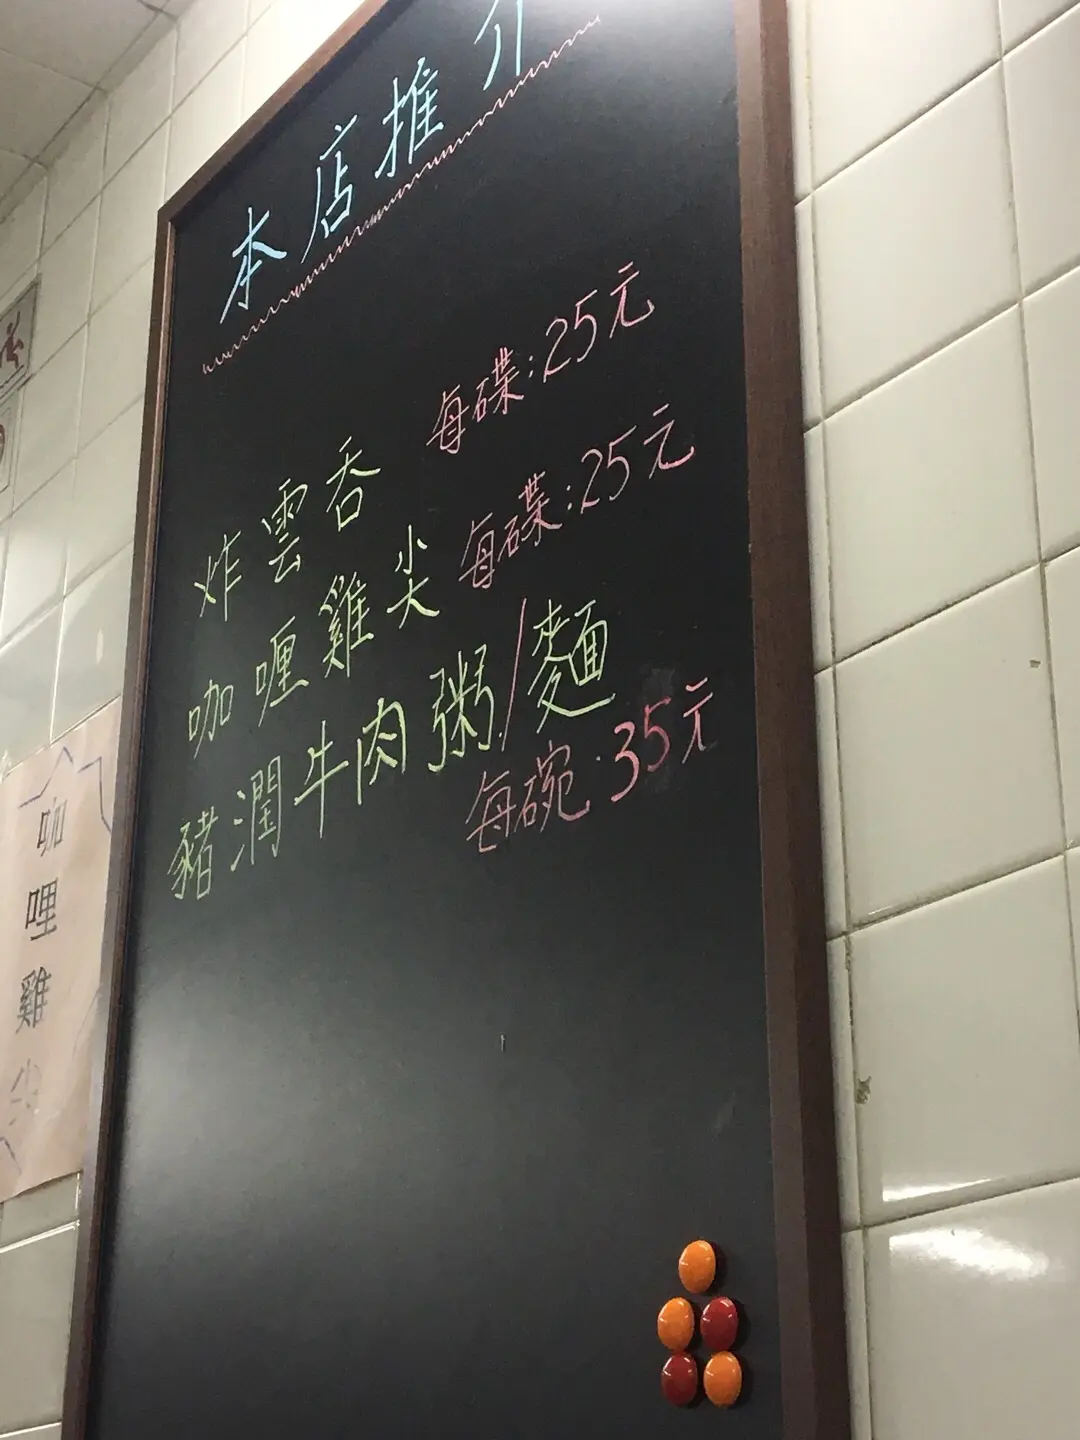 本店推介
炸雲吞 每碟:25元
咖喱雞尖 每碟:25元
豬潤牛肉粥/麵
每碗:35元
咖
哩
雞
尖